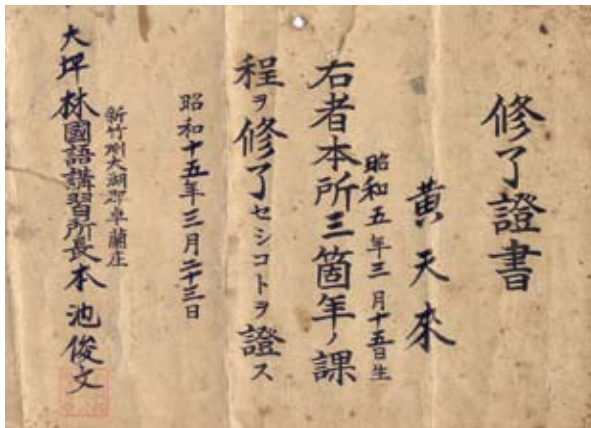 修了證書
黃天來
昭和五年三月十五日生
右者本所三箇年ノ課
程ヲ修了セシコトヲ證ス
昭和十五年三月二十三日
新竹州大湖郡卓蘭庄
大坪林國語講習所長本池俊文